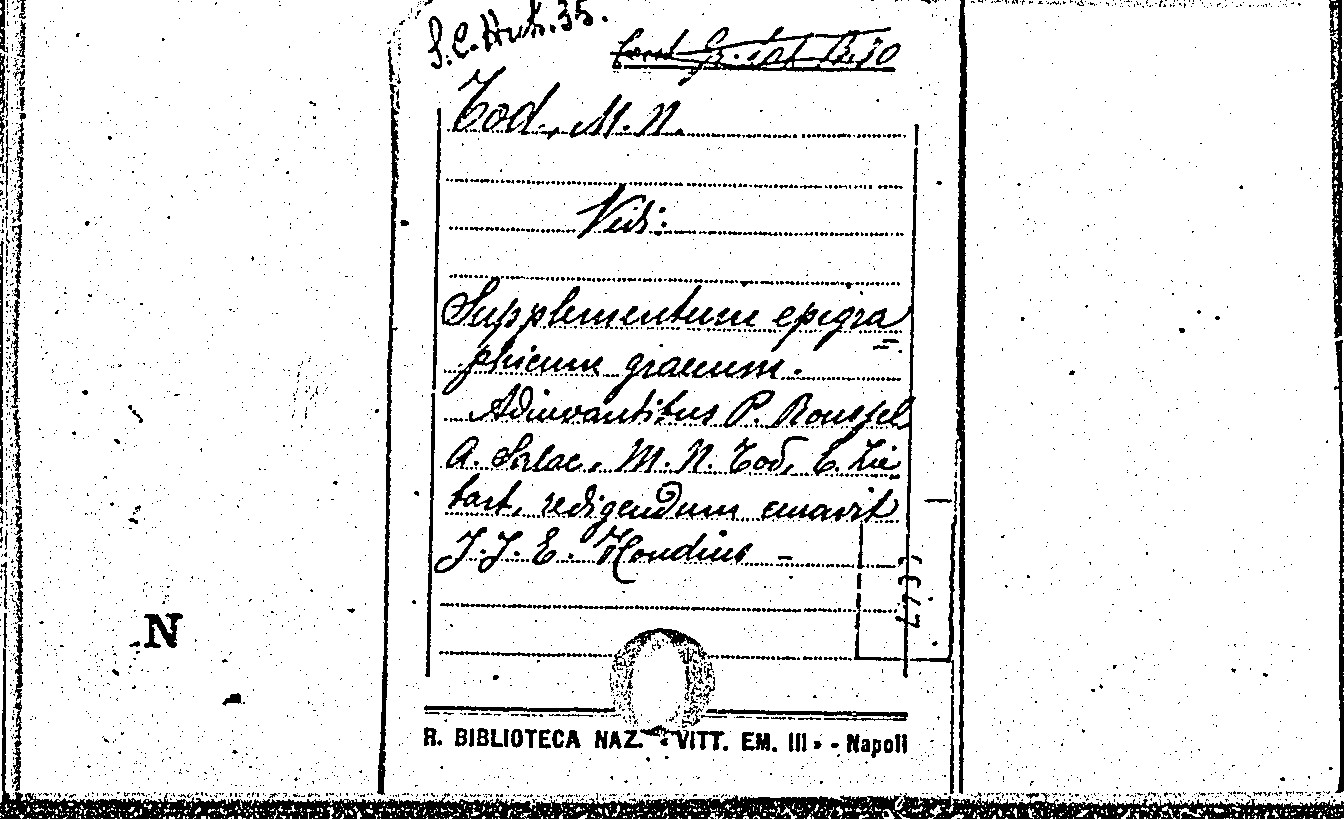 Tod, M. N.
Vedi:
Supplementum epigra
phicum graecum.
Adiuvantibus P. Roussel
A. Salac, M. N. Tod, E. Zie
bart, redigendum curavit
J. J. E. Hondius -
N
R. BIBLIOTECA NAZ. « VITT. EM. III » - Napoli